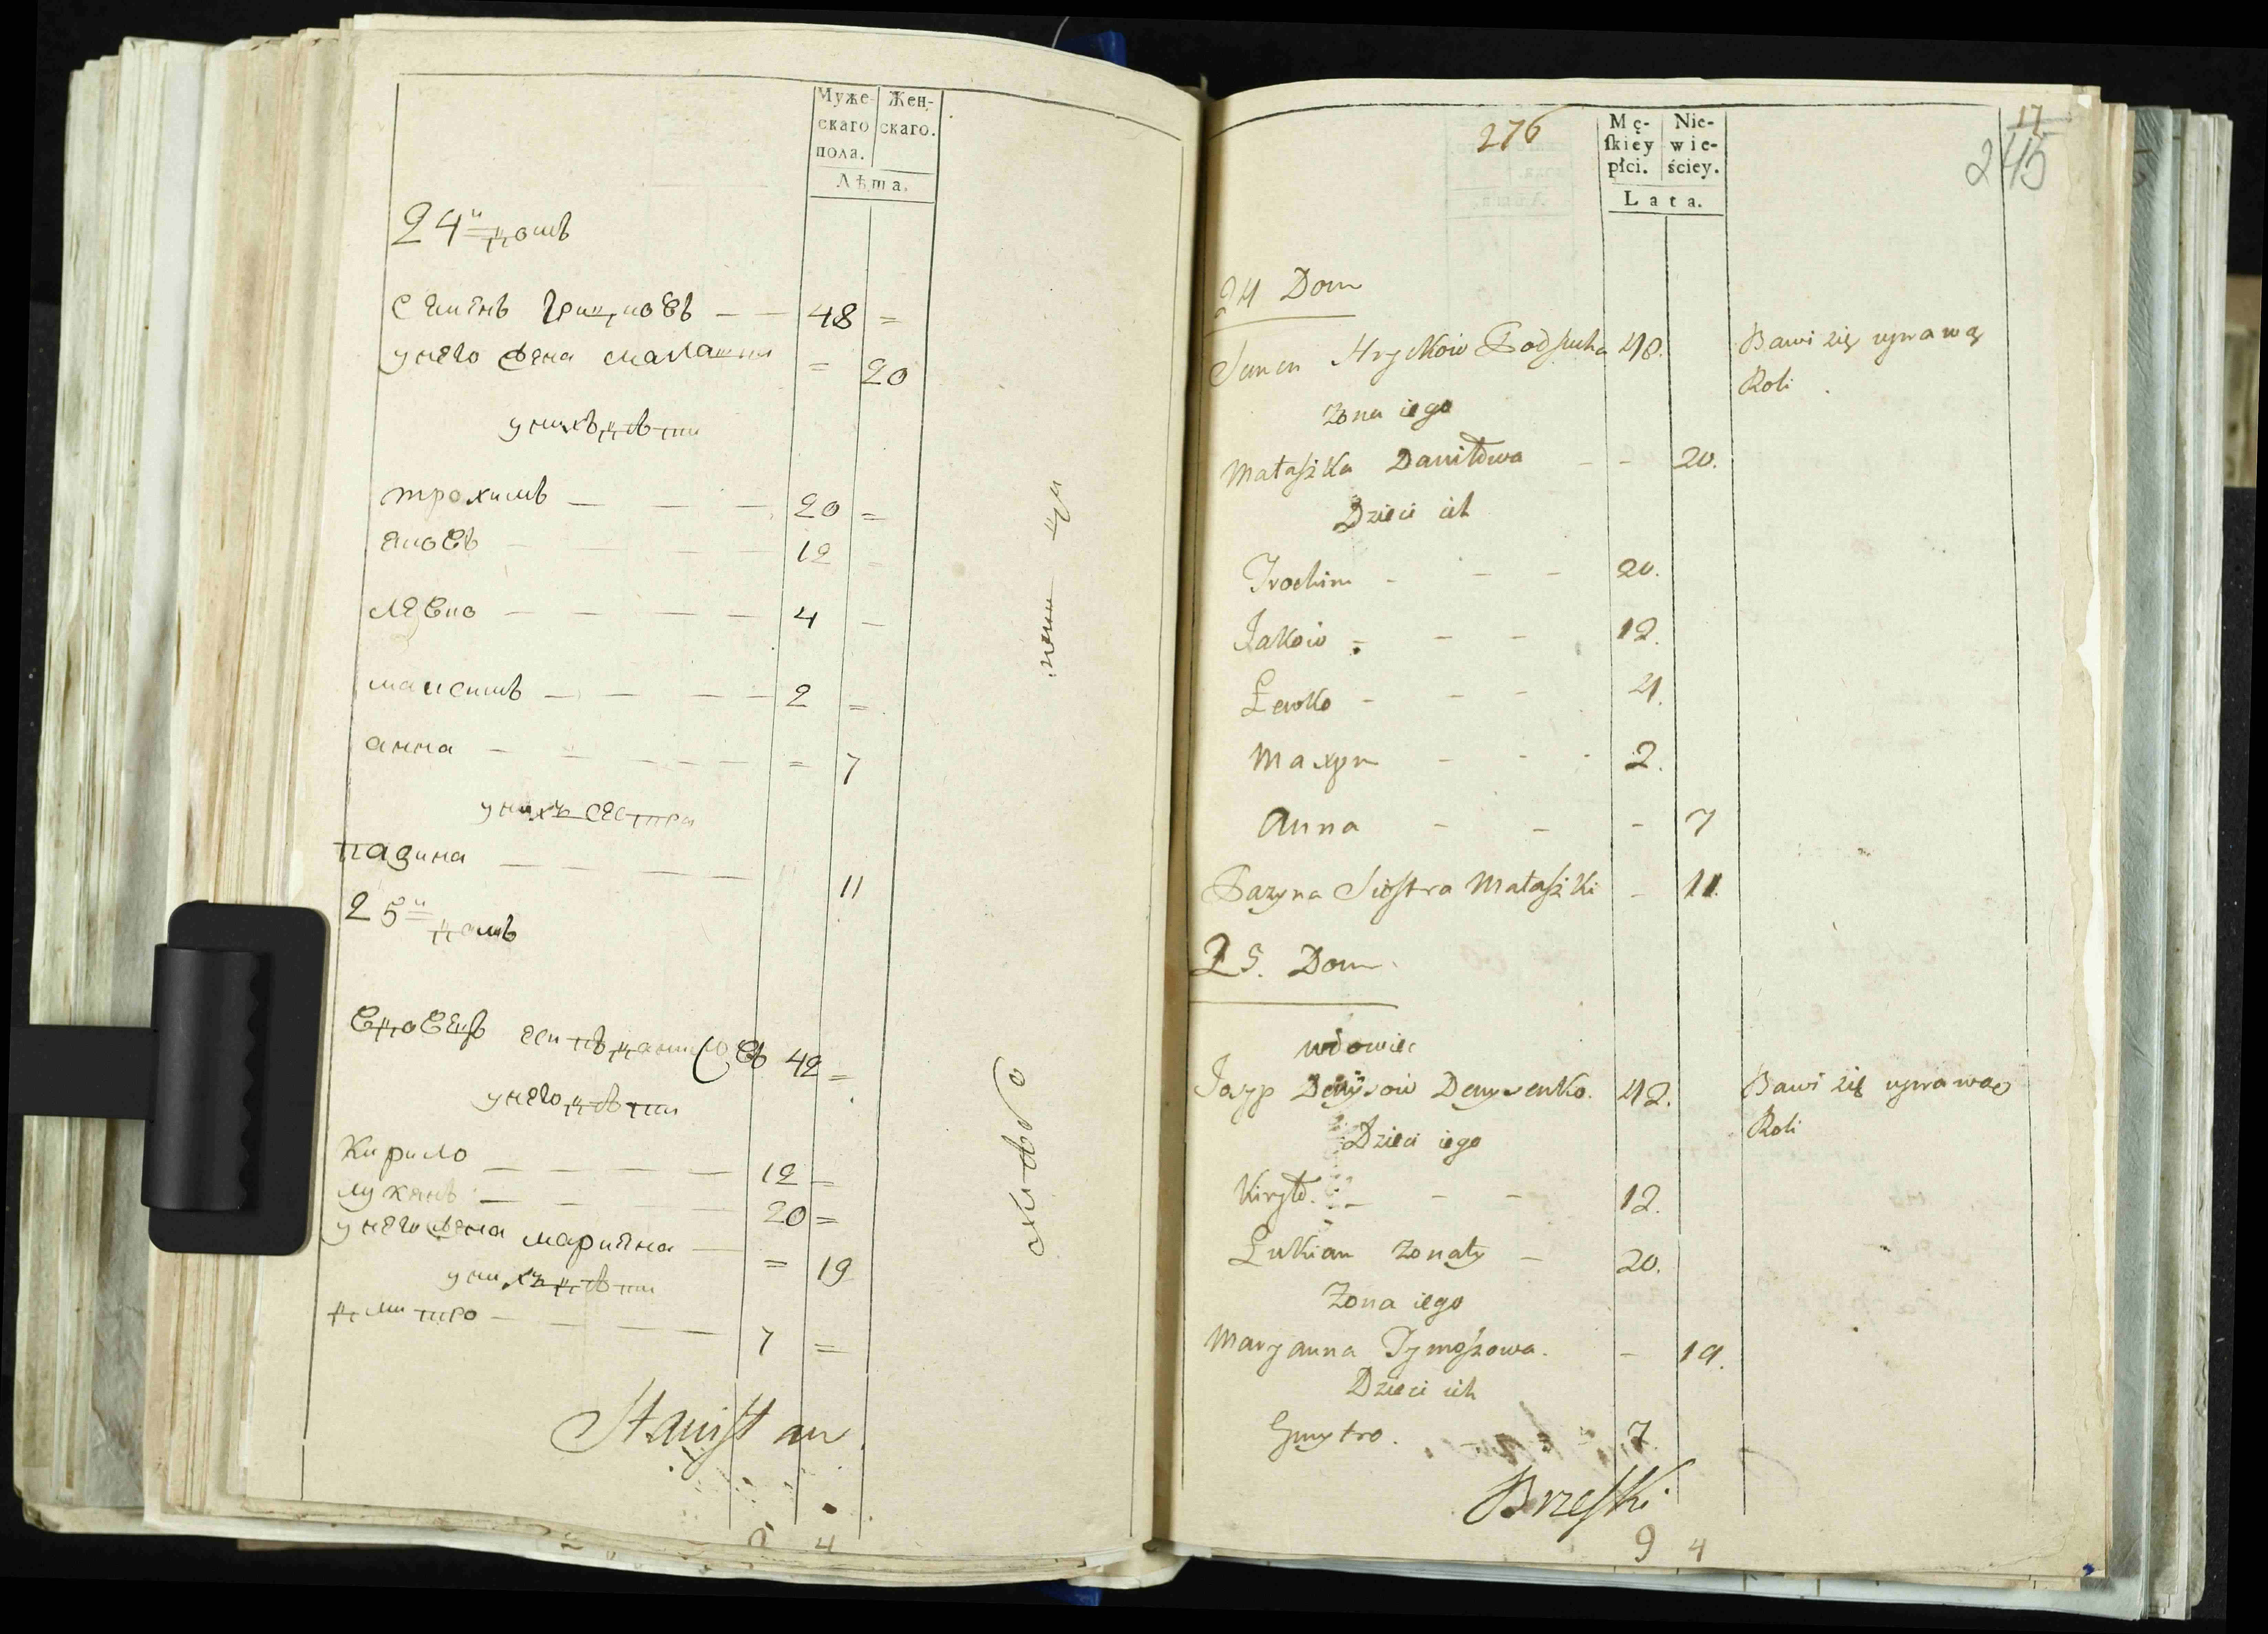 Муже-
скаго
пола.
Жен-
скаго.
Лѣта.
24й домъ
Семенъ Грицковъ — — 48 =
у него жена малашка = 20
у нихъ дѣти
трохимъ — — — 20 =
яковъ — — — — 12 =
левко — — — — 4 —
максимъ — — — — 2 =
анна — — — — — = 7
у нихъ сестра
пазина — — — — 11
25й домъ
вдовецъ есипъ денисовъ 42 =
у него дѣти
Кирило — — — — — 12 =
лукянъ — — — — 20 =
у него жена марияна — = 19
у нихъ дѣти
дмитро — — — — 7 =
Stanisław
4
276
17
245
Mę-
skiey
płci.
Nie-
wie-
ściey.
Lata.
24 Dom
Semen Hryckow Podsucha 48. Bawi się uprawą
Roli
Zona iego
Małaszka Daniłowa - - 20.
Dzieci ich
Trochim - - - 20.
Jakow - - - 12.
Lewko - - - 4.
Maxym - - - 2.
Anna - - - 7
Pazyna Siostra Małaszki - 11.
25. Dom
wdowiec
Jozyp Denysow Denysenko. 42. Bawi się uprawą
Roli
Dzieci iego
Kiryło. - - - 12.
Lukian żonaty - 20.
Zona iego
Maryanna Tymoszowa. - 19.
Dzieci ich
Dmytro. 7
Brzeski
9 4